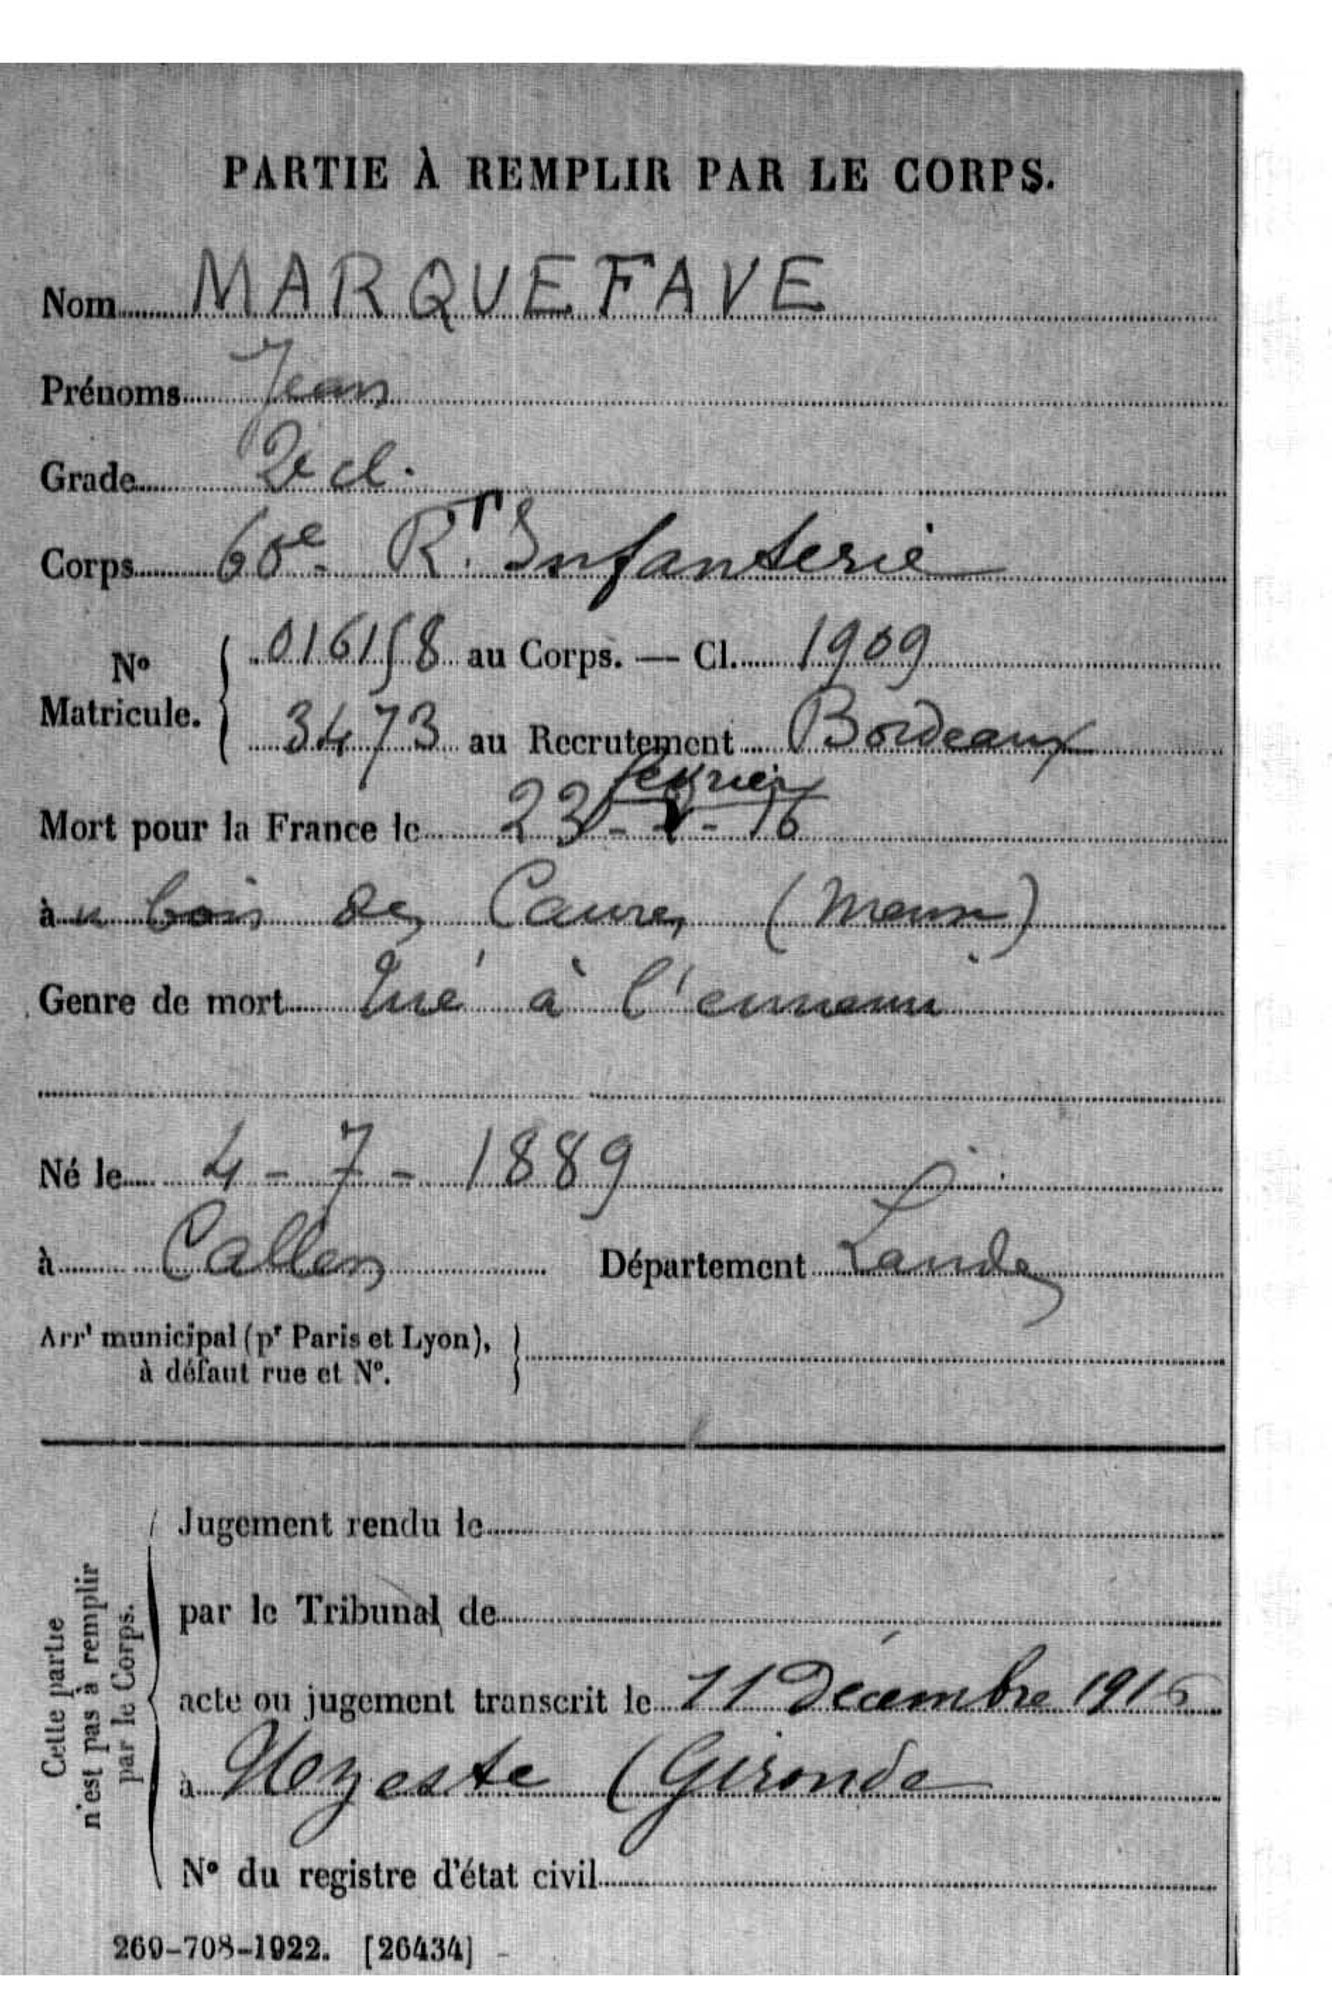 PARTIE À REMPLIR PAR LE CORPS.
Nom MARQUEFAVE
Prénoms Jean
Grade 2e cl.
Corps 60e Rt Infanterie
No Matricule. 016158 au Corps. — Cl. 1909
3473 au Recrutement Bordeaux
février
Mort pour la France le 23 - 2 - 16
à u bois des Caures (Meuse)
Genre de mort Tué à l'ennemi
Né le 4 - 7 - 1889
à Callen Département Landes
Arrt municipal (pr Paris et Lyon),
à défaut rue et No.
Cette partie
n'est pas à remplir
par le Corps.
Jugement rendu le
par le Tribunal de
acte ou jugement transcrit le 11 Décembre 1916
à Uzeste (Gironde
No du registre d'état civil
269-708-1922. [26434]